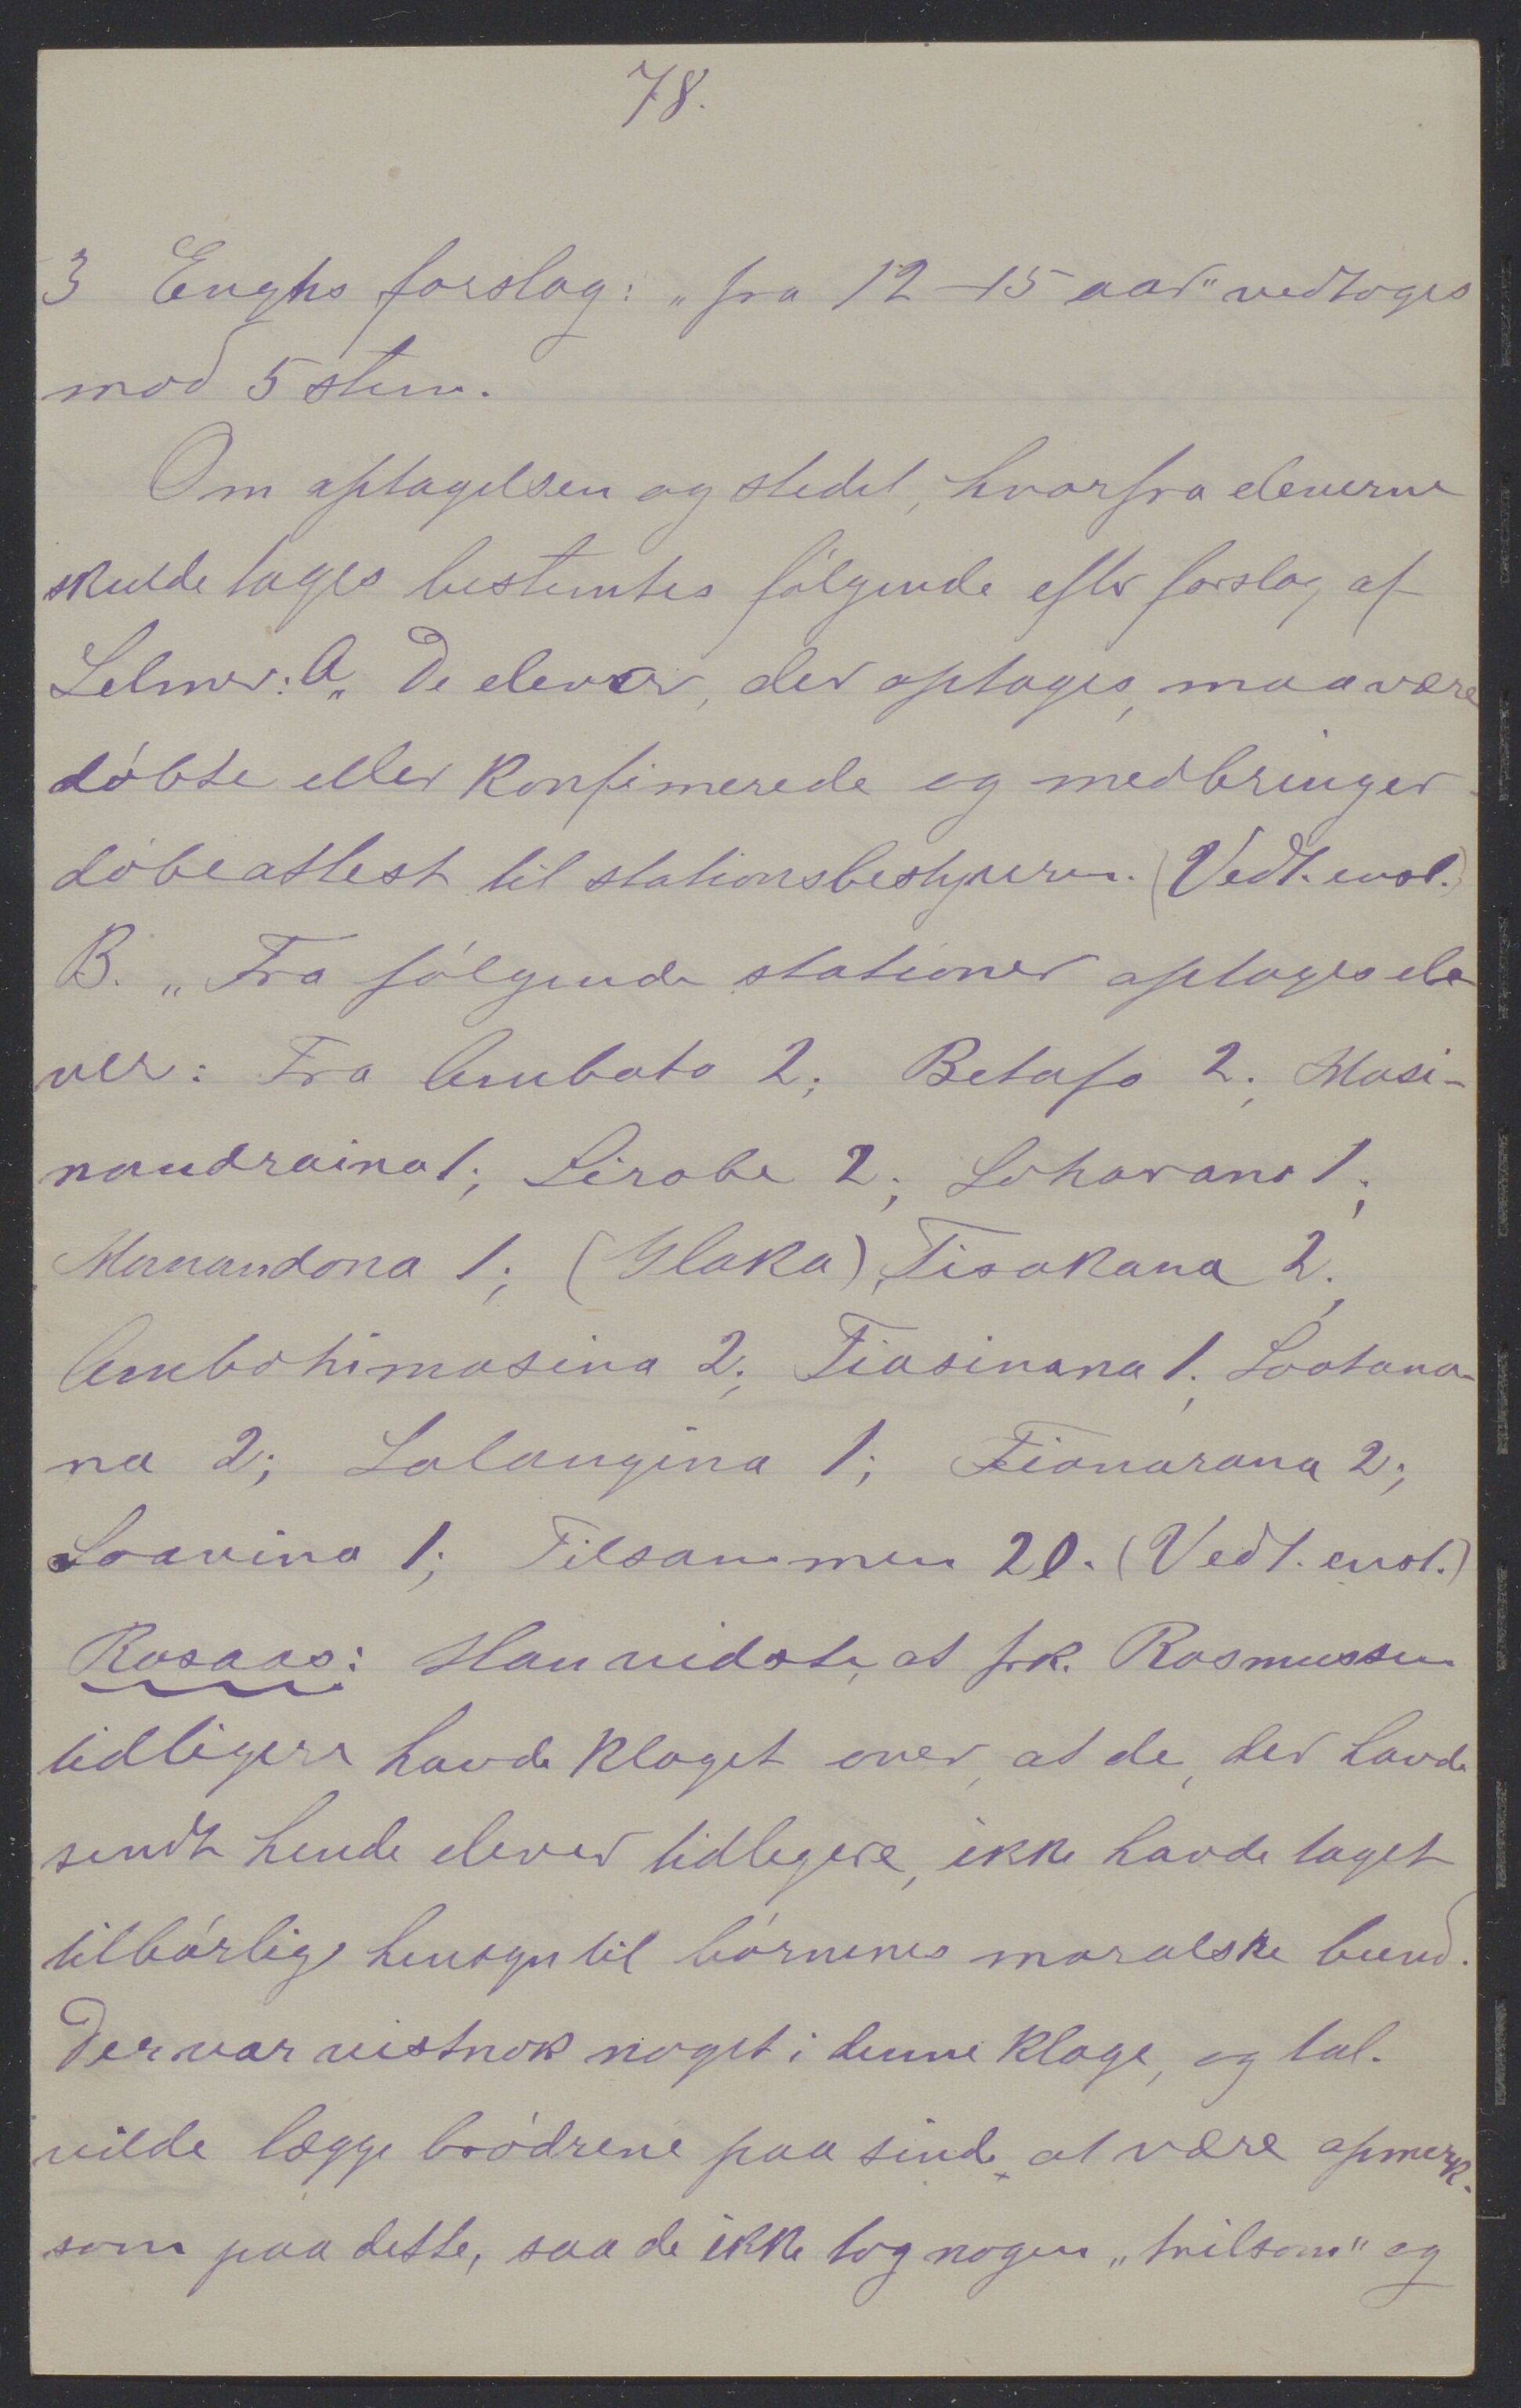 78.
3 Enghs forslag: „fra 12-15 aar" vedtoges
mod 5 stem.
Om optagelsen og stedet, hvorfra eleverne
skulde tages bestemtes fólgende efter forslag af
Selmer: A„ De elever, der optages, maa være
dóbte eller konfimerede og medbringer
dóbeattest til stationsbestyreren. (Vedt. enst.)
B. „Fra fólgende stationer optages ele-
ver: Fra Ambato 2; Betafo 2; Masi-
nandraina 1; Sirabe 2; Loharano 1;
Manandona 1; (Ilaka), Fisakana 2;
Ambohimasina 2; Fiasinana 1; Soatana-
na 2; Lalangina 1; Fianarana 2;
Soavina 1; Tilsammen 20. (Vedt. enst.)
Rosaas: Han vidste, at frk. Rasmussen
tidligere havde klaget over, at de, der havde
sendt hende elever tidligere, ikke havde taget
tilbórlig hensyn til bórnenes moralske bund.
Der var vistnok noget i denne klage, og tal.
vilde lægge bródrene paa sinde at være opmerk-
som paa dette, saa de ikke tog nogen „tvilsom" og